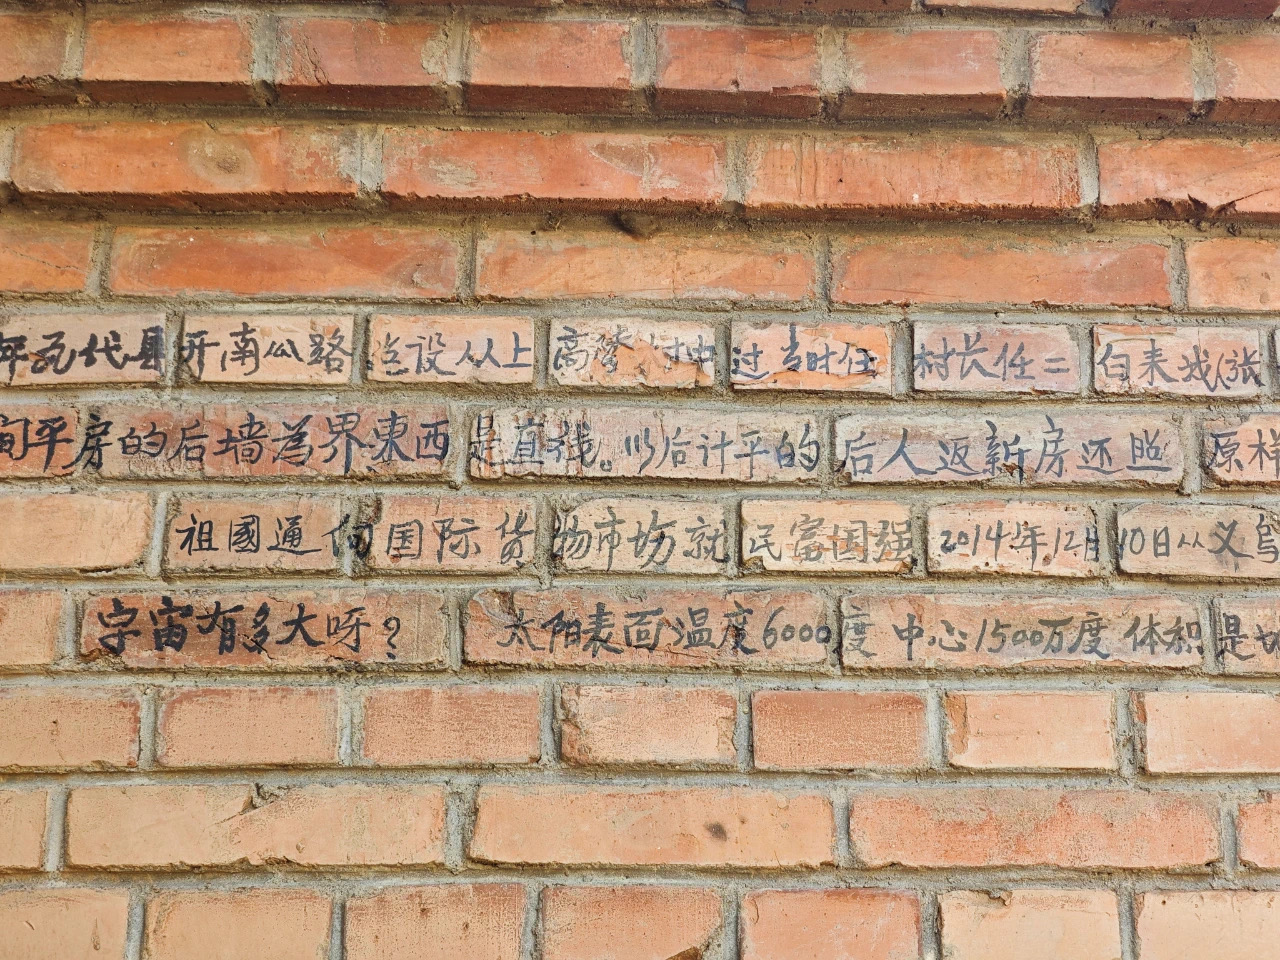 年 代县开南公路 当设从上 高 村中 过当时任 村长任二 白来 张
间平房的后墙為界東西是直线。以后计平的后人返新房还照原样
祖國通何国际货物市场就民富国强2014年12月10日从义乌
宇宙有多大呀? 太阳表面温度6000度中心1500万度体积是地